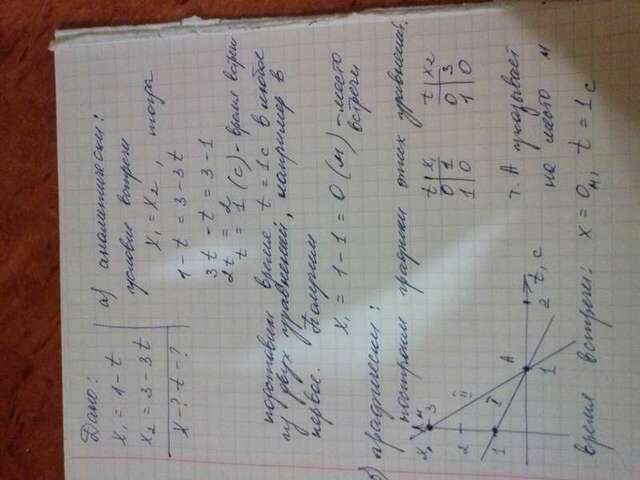 Дано:
x₁ = 1 - t
x₂ = 3 - 3t
x - ? t - ?
а) аналитически:
условие встречи
x₁ = x₂, тогда
1 - t = 3 - 3t
3t - t = 3 - 1
2t = 2
t = 1 (с) - время встречи
подставим время t = 1 с в любое
из двух уравнений, например в
первое.
Получим
x₁ = 1 - 1 = 0 (м) - место
встречи
б) графически:
построим графики этих уравнений.
t | x₁
0 | 1
1 | 0
t | x₂
0 | 3
1 | 0
x, м
3
2
1
I
II
A
1
2
t, с
т. А указывает
на место и
время встречи: x = 0 м, t = 1 с